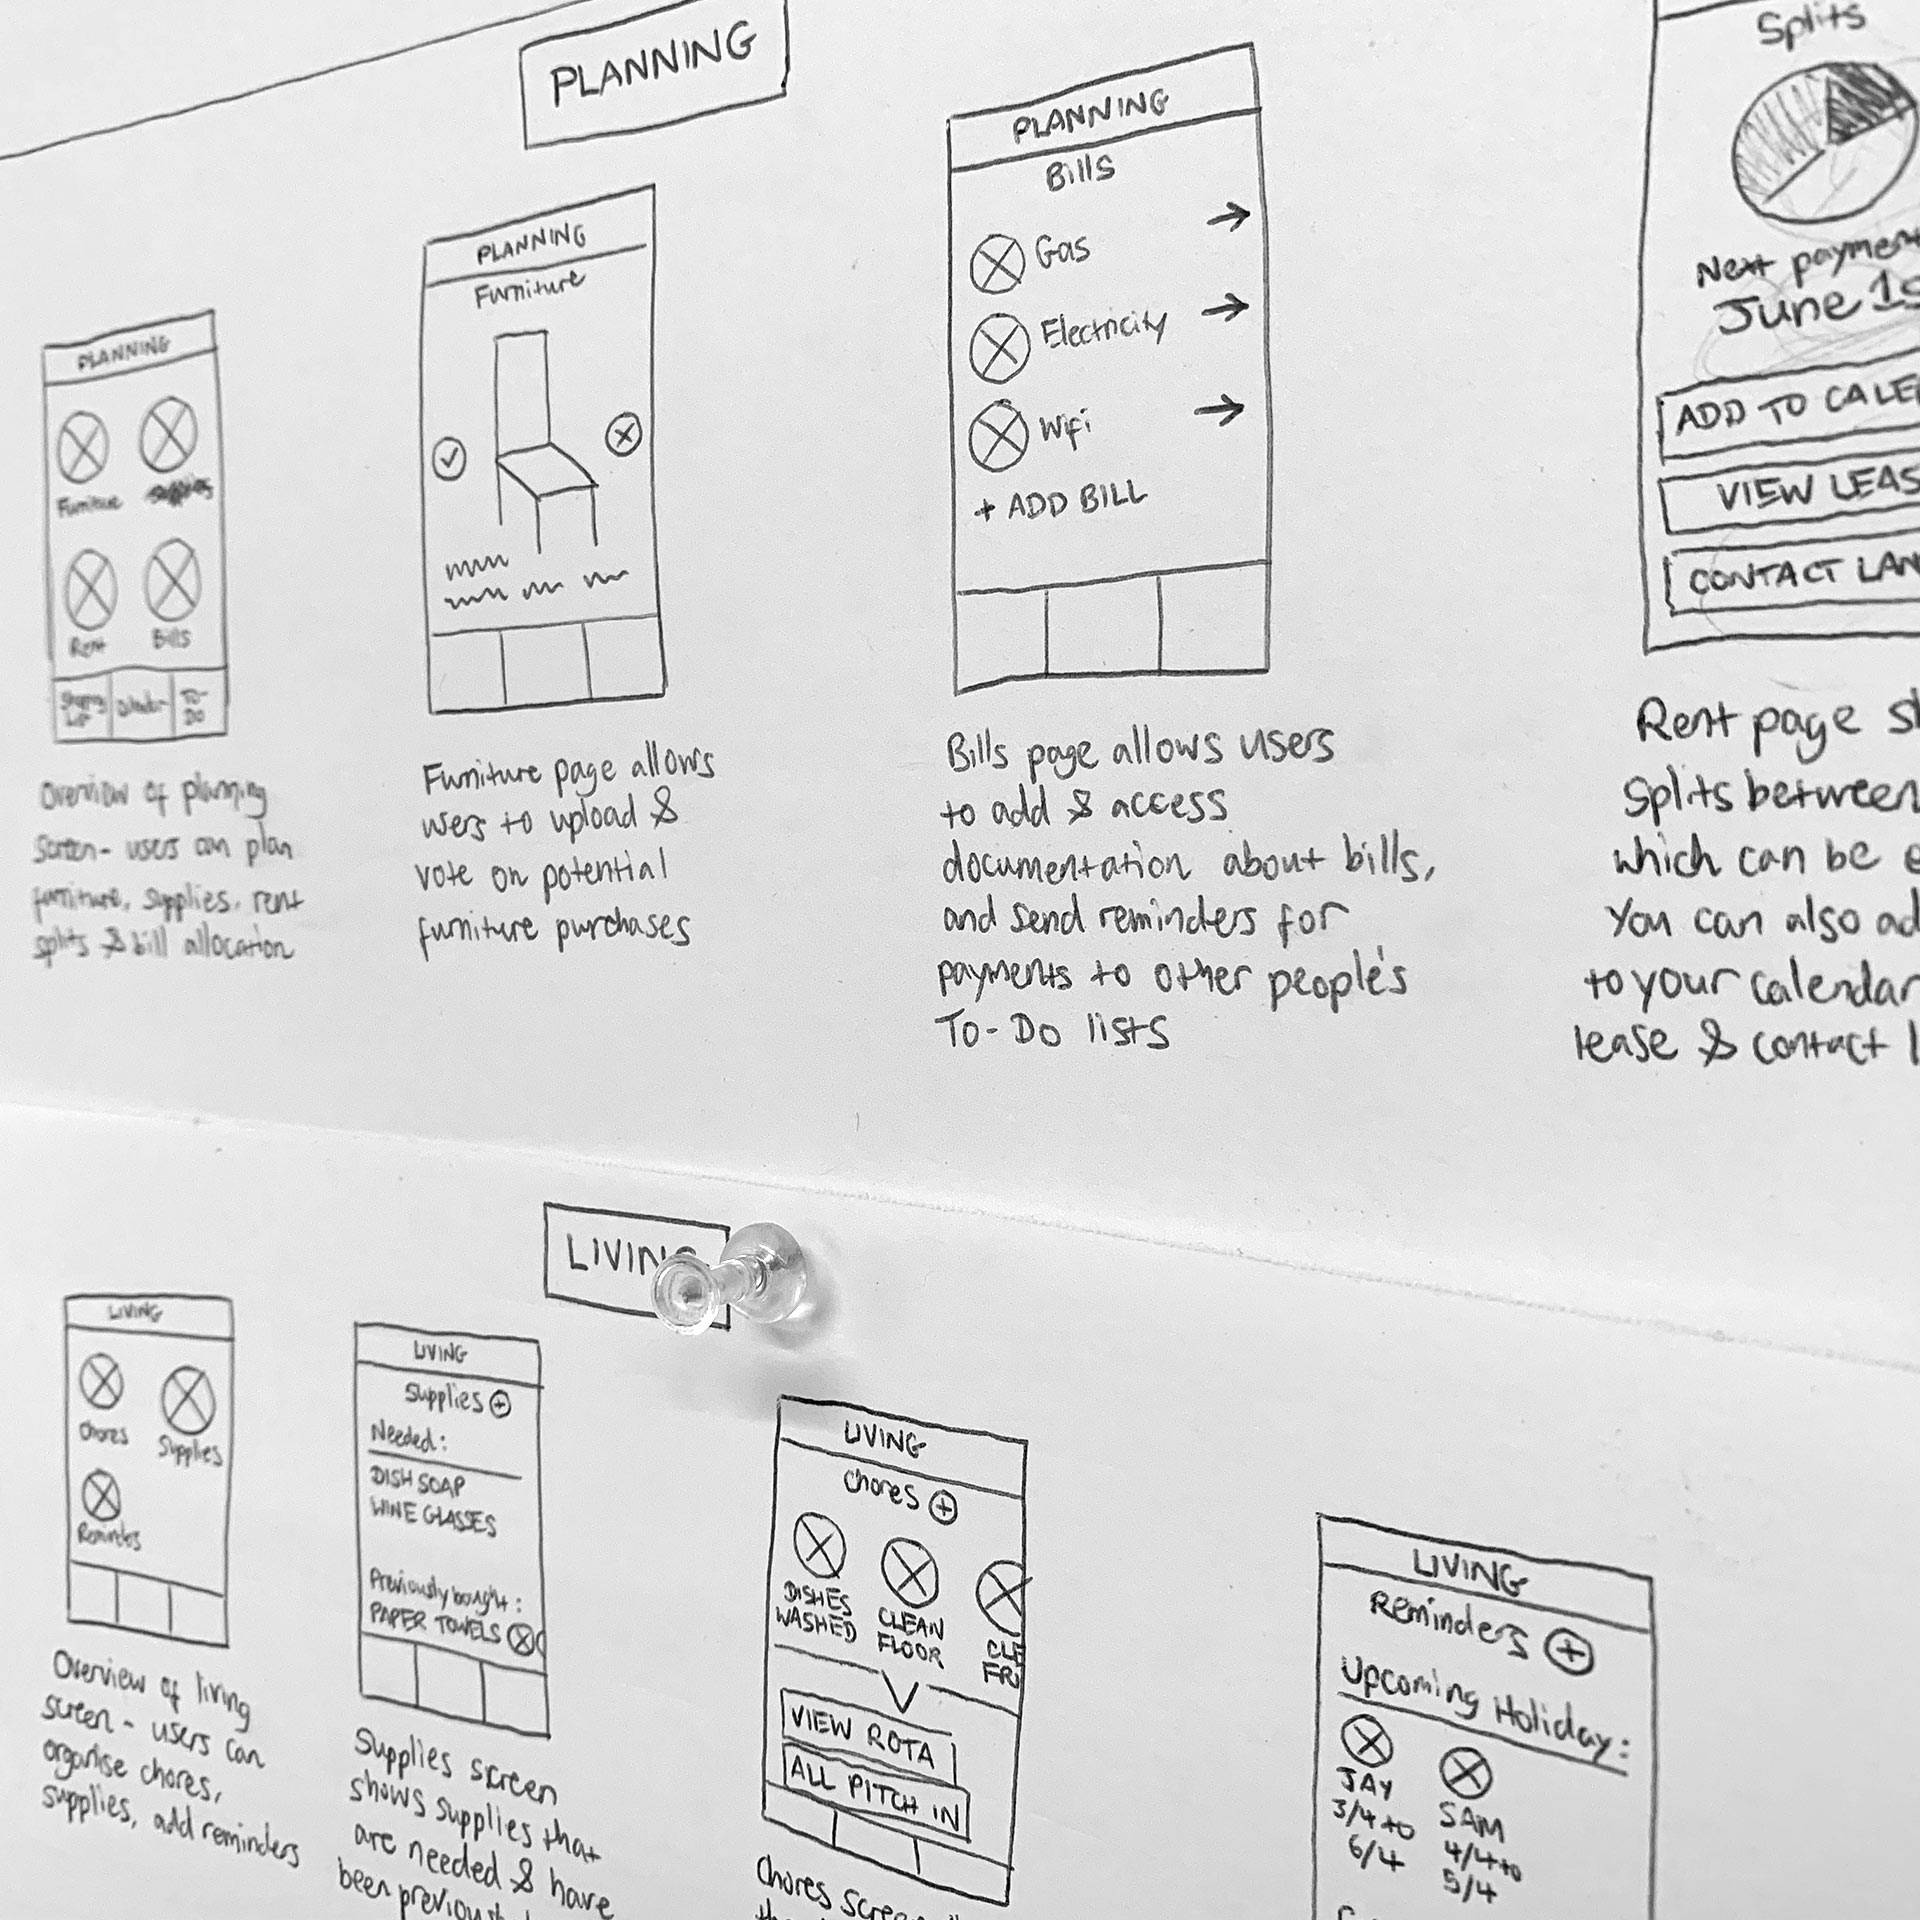 PLANNING
PLANNING
Furniture
Rent
Bills
TO-
DO
Overview of planning
screen - users can plan
furniture, supplies, rent
splits & bill allocation
PLANNING
Furniture
Furniture page allows
users to upload &
vote on potential
furniture purchases
PLANNING
Bills
Gas
Electricity
Wifi
+ ADD BILL
Bills page allows users
to add & access
documentation about bills,
and send reminders for
payments to other people's
To-Do lists
Splits
Next paymen
June 1s
ADD TO CALE
VIEW LEAS
CONTACT LAN
Rent page s
splits between
which can be e
You can also ad
to your calendar
lease & contact l
LIVING
LIVING
Chores
Supplies
Reminders
Overview of living
screen - users can
organise chores,
supplies, add reminders
LIVING
Supplies +
Needed:
DISH SOAP
WINE GLASSES
Previously bought:
PAPER TOWELS
Supplies screen
shows supplies that
are needed & have
been previous
LIVING
Chores +
DISHES
WASHED
CLEAN
FLOOR
CLE
FRI
VIEW ROTA
ALL PITCH IN
Chores scree
LIVING
Reminders +
Upcoming Holiday:
JAY
3/4 to
6/4
SAM
4/4 to
5/4